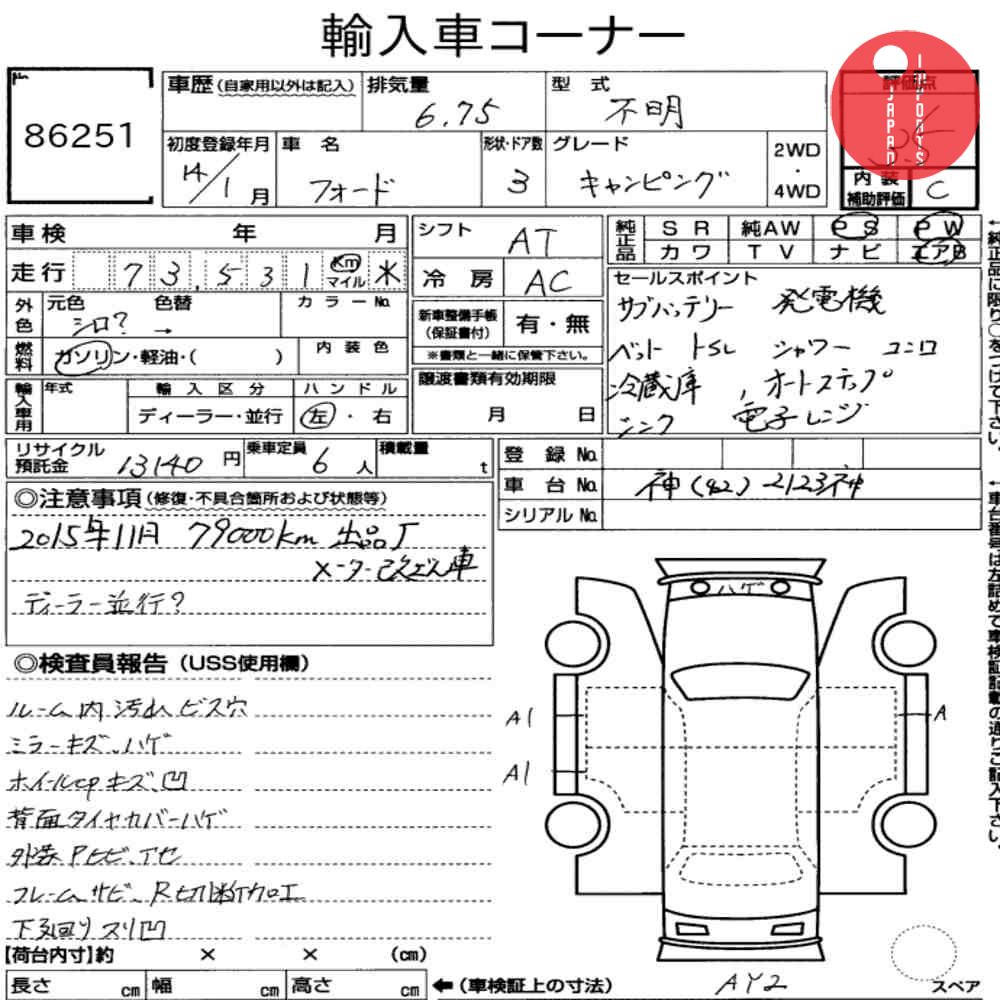 輸入車コーナー
No.
86251
車歴(自家用以外は記入)
排気量
6.75
型 式
不明
評価点
3.5
IMPORTS
JAPAN
初度登録年月
14/1月
車 名
フォード
形状・ドア数
3
グレード
キャンピング
2WD
・
4WD
内 装
補助評価
C
車 検 年 月
走 行 73,531 Km マイル
外色
元色 色替
シロ? →
カラーNo.
燃料
ガソリン・軽油・( )
内 装 色
シフト
AT
冷 房
AC
新車整備手帳
(保証書付)
有・無
※書類と一緒に保管下さい。
純正品
S R 純AW P S P W
カ ワ T V ナ ビ エアB
セールスポイント
サブバッテリー 発電機
ベット トSL シャワー ユニロ
冷蔵庫 , オートステップ
シンク 電子レンジ
輸入車用
年式
輸 入 区 分
ディーラー・並行
ハ ン ド ル
左・右
譲渡書類有効期限
月 日
リサイクル
預託金 13140円
乗車定員
6人
積載量
t
登 録 No.
車 台 No. 神(42)2123神
シリアル No.
◎注意事項(修復・不具合箇所および状態等)
2015年11月 79000km 出品了
メーター改ざん車
ディーラー並行?
◎検査員報告(USS使用欄)
ルーム内 汚れ ビス穴
ミラーキズ、ハゲ
ホイールcp キズ、凹
背面タイヤカバーハゲ
外装 Pヒビ、アセ
フレームサビ R切断加工
下回り スリ凹
ハゲ
A1
A
A1
【荷台内寸】約 × × (cm)
長さ cm 幅 cm 高さ cm
←(車検証上の寸法)
AY2
スペア
←純正品に限り○をつけて下さい。
←車台番号は左詰めで車検証記載の通りご記入下さい。